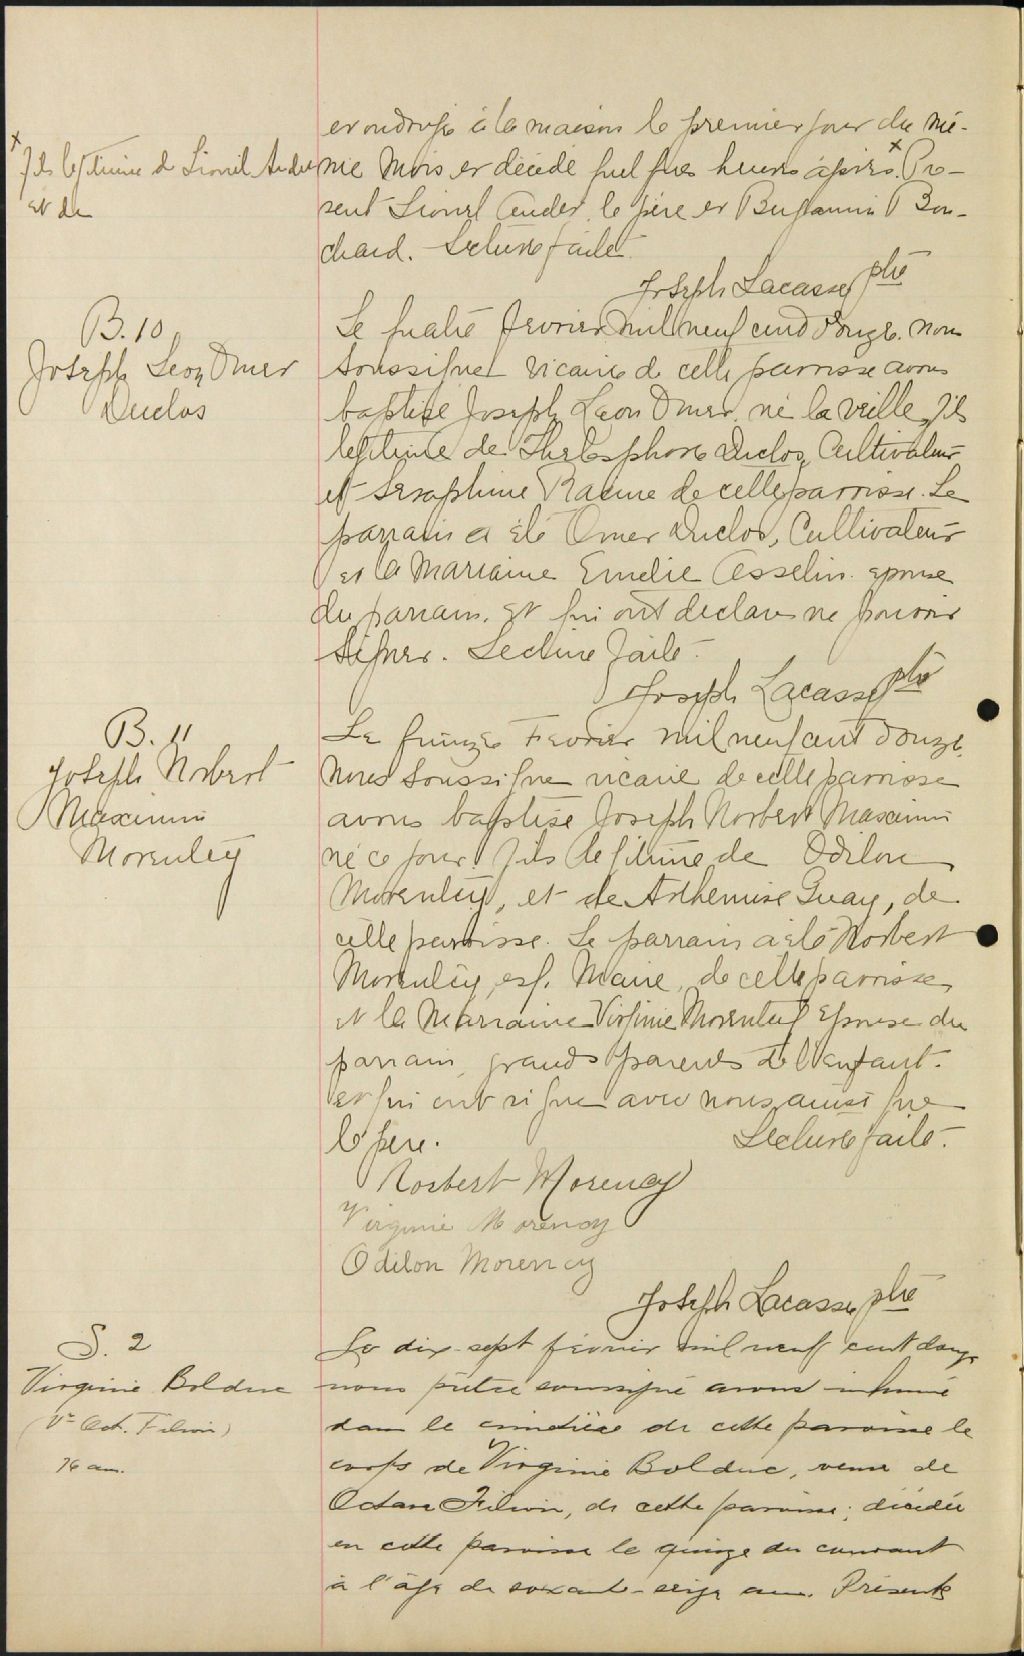 et ondoyé à la maison le premier jour du mê-
x
fils legitime de Lionel Audet
et de
me mois et décédé quelques heures après x. Pré-
sent Lionel Audet le père et Benjamin Bou-
chard. Lecture faite
Joseph Lacasse ptre
B. 10
Joseph Leon Omer
Duclos
Le quatre Fevrier mil neuf cent douze. nous
soussigné vicaire de cette paroisse avons
baptisé Joseph Leon Omer, né la veille, fils
legitime de Thelesphore Duclos, Cultivateur
et Seraphine Racine de cette paroisse. Le
parrain a été Omer Duclos, Cultivateur
et la Marraine Emelie Asselin. epouse
du parrain. Et qui ont declaré ne pouvoir
signer. Lecture faite.
Joseph Lacasse ptre
B. 11
Joseph Norbert
Maximin
Morency
Le quinze Fevrier mil neuf cent douze,
Nous soussigné vicaire de cette paroisse
avons baptisé Joseph Norbert Maximin
né ce jour fils legitime de Odilon
Morency, et de Arthemise Guay, de
cette paroisse. Le parrain a été Norbert
Morency, esq. Maire, de cette paroisse,
et la Marraine Virginie Morency Epouse du
parrain, grands parents de l'enfant.
et qui ont signé avec nous ainsi que
le père. Lecture faite.
Norbert Morency
Virginie Morency
Odilon Morency
Joseph Lacasse ptre
S. 2
Virginie Bolduc
(Ve Oct. Filion)
76 ans.
Le dix-sept février mil neuf cent douze
nous prêtre soussigné avons inhumé
dans le cimetière de cette paroisse le
corps de Virginie Bolduc, veuve de
Octave Filion, de cette paroisse; décédée
en cette paroisse le quinze du courant
à l'âge de soixante-seize ans. Présents